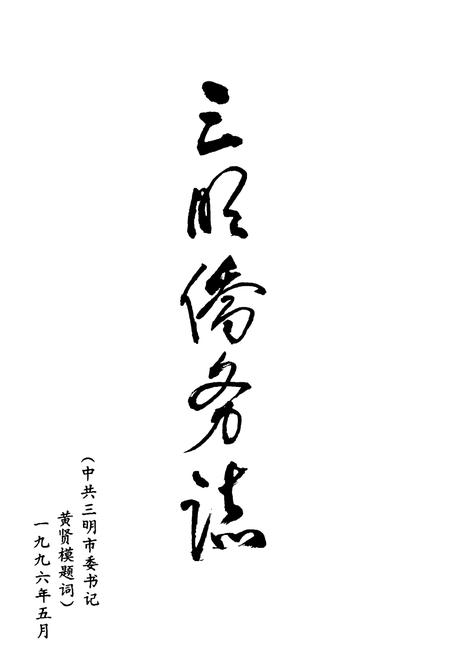 三明侨务誌
（中共三明市委书记
黄贤模题词）
一九九六年五月